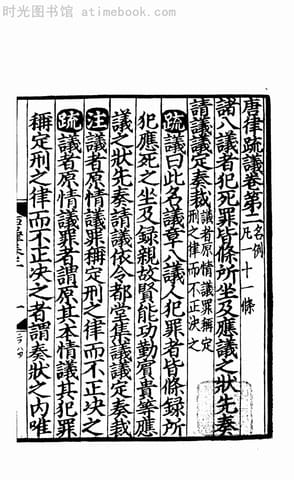 时光图书馆 atimebook.com
唐律疏議卷第二 名例 凡一十一條
諸八議者犯死罪皆條所坐及應議之狀先奏
請議議定奏裁 議者原情議罪稱定刑之律而不正決之
疏議曰此名議章八議人犯罪者皆條錄所
犯應死之坐及錄親故賢能功勤賓貴等應
議之狀先奏請議依令都堂集議議定奏裁
注議者原情議罪稱定刑之律而不正决之
疏議者原情議罪者謂原其本情議其犯罪
稱定刑之律而不正决之者謂奏狀之内唯